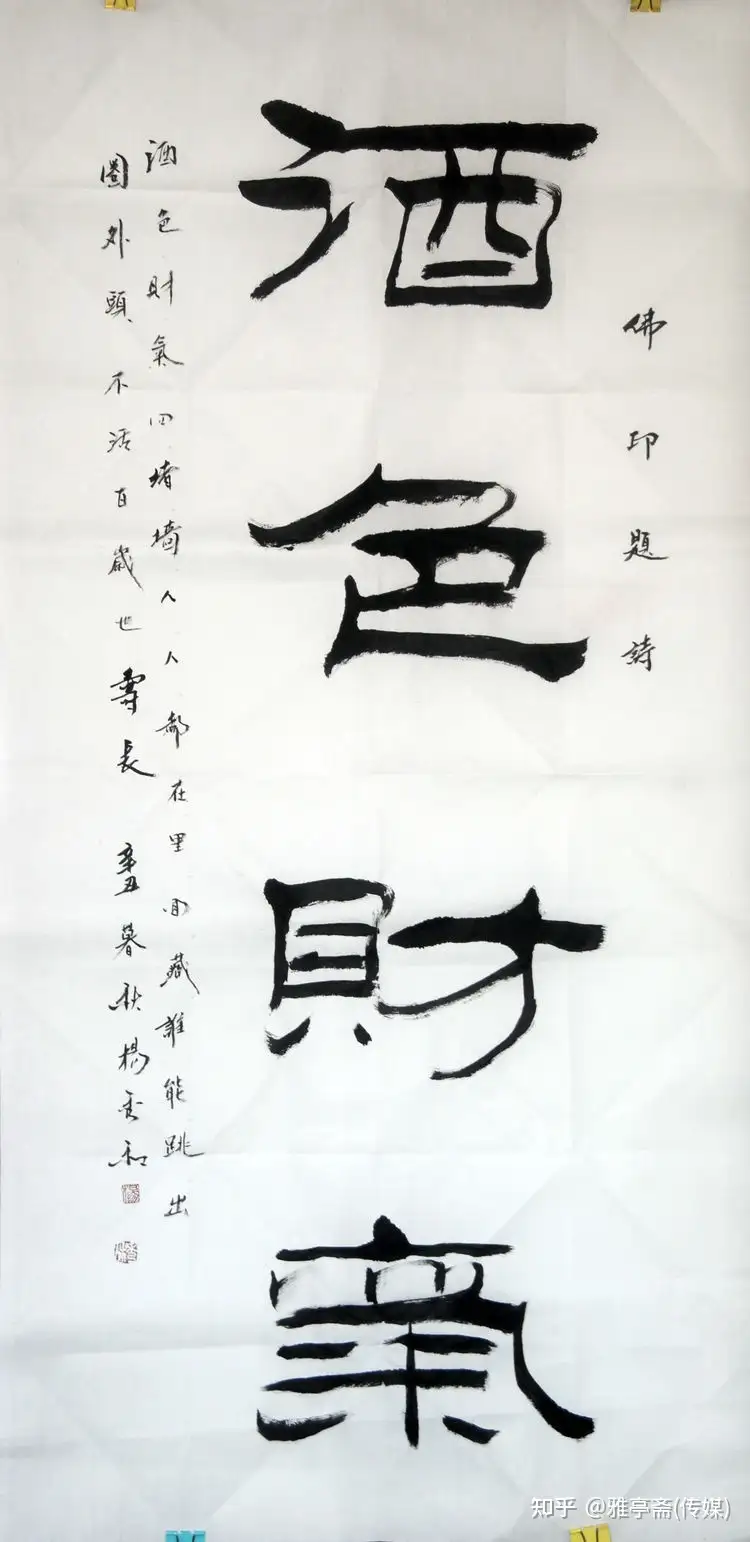 佛印題詩
酒色財氣
酒色財氣四堵墙人人都在里面藏誰能跳出
圈外頭不活百歲也壽長 辛丑暮秋楊和
知乎 @雅亭斋(传媒)